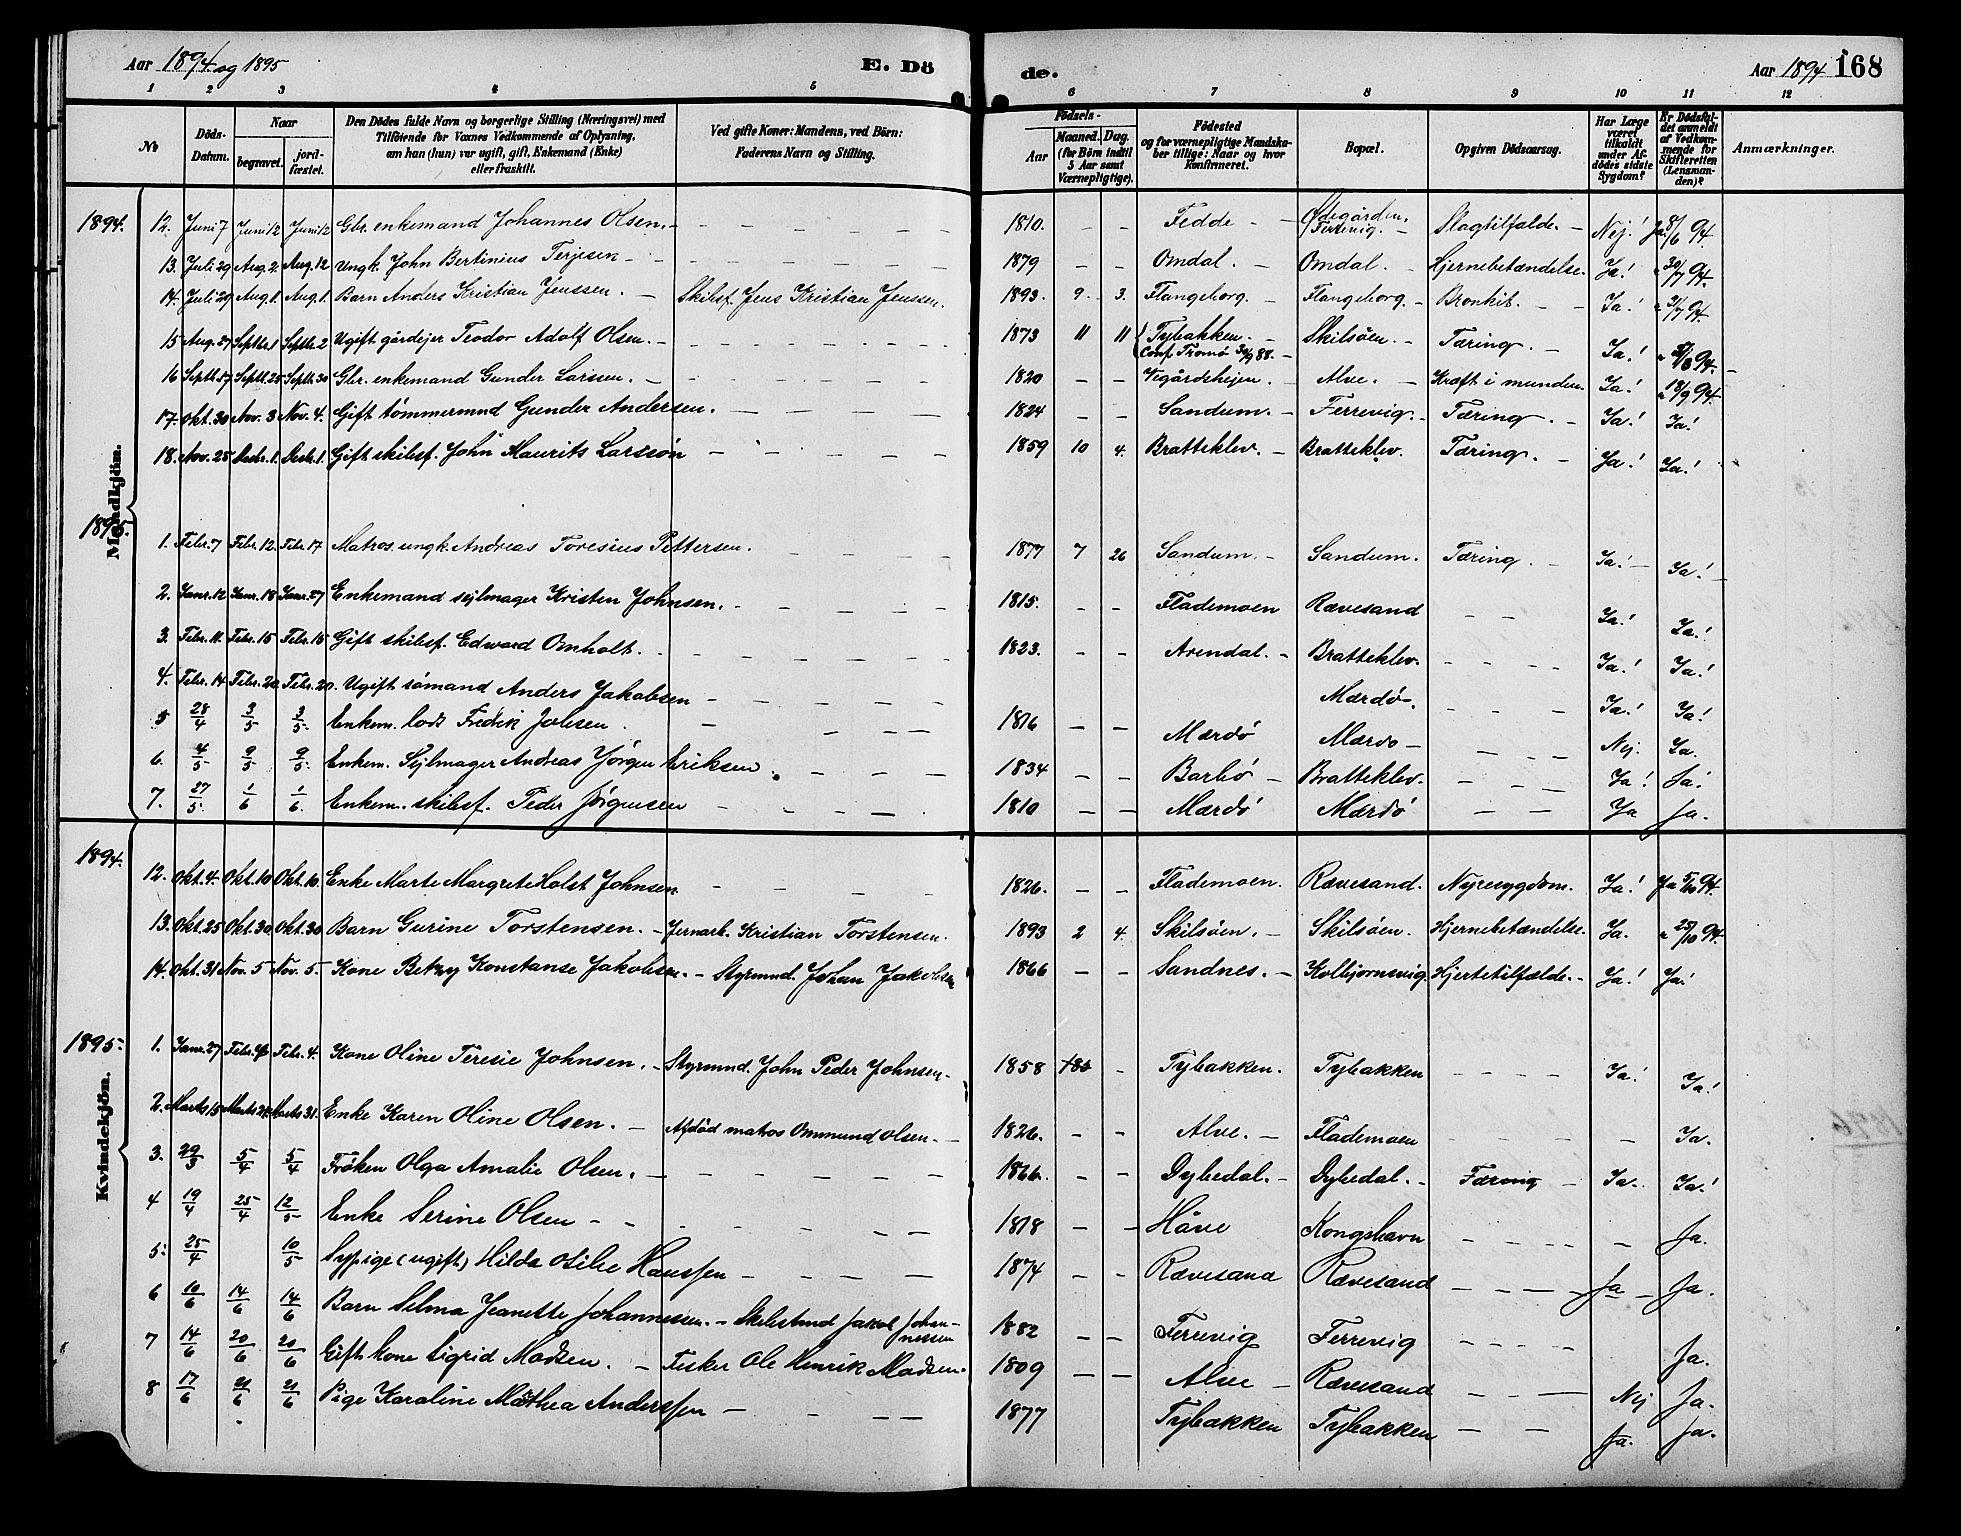 Aar 1894 og 1895 E. Dö de. Aar 1894 168
1 2 3 4 5 6 7 8 9 10 11 12
No Döds-Datum. Naar begravet. jordfæstet. Den Dödes fulde Navn og borgerlige Stilling (Næringsvei) med Tilföiende for Voxnes Vedkommende af Oplysning, om han (hun) var ugift, gift, Enkemand (Enke) eller fraskilt. Ved gifte Koner: Mandens, ved Börn: Faderens Navn og Stilling. Födsels- Aar Maaned. Dag. (for Börn indtil 5 Aar samt Værnepligtige). Födested og for værnepligtige Mandskaber tillige: Naar og hvor konfirmeret. Bopæl. Opgiven Dödsaarsag. Har Læge været tilkaldt under Afdödes sidste Sygdom? Er Dödsfaldet anmeldt af Vedkommende for Skifteretten (Lensmanden)? Anmærkninger.
Mandkjön.
1894. 12. Juni 7 Juni 12 Juni 12 Gbr. enkemand Johannes Olsen. - 1810. - - Fedde - Ødegården. Færevig. - Slagtilfælde. - Nej! Ja 8/6 94
13. Juli 29 Aug. 2. Aug. 12 Ungk. John Bertinius Terjesen - 1879 - - Omdal. - Omdal. - Hjernebetændelse. Ja! " 30/7 94.
14. Juli 29 Aug. 1. Aug. 1. Barn Anders Kristian Jenssen. - Skibsf. Jens Kristian Jenssen. 1893. 9. 3. Flangeborg. - Flangeborg. - Bronkit. - Ja! " 31/7 94.
15 Aug. 27 Septbr. 1 Septbr. 2 Ugift gårdejer Teodor Adolf Olsen. - 1873 11 11 Tybakken. - Conf. Tromö 30/9 88. - Skilsöen. - Tæring. - Ja! 94.
16 Septb. 17 Septb. 25 Septb. 30 Gbr. enkemand Gunder Larssen. - 1820 - - Vegårdshejen. - Alve. - Kræft i munden. Ja! " 18/9 94.
17. Okt. 30 Nov. 3 Nov. 4. Gift tömmermnd Gunder Andersen. - 1824 - - Sandum. - Ferrevig. - Tæring. - Ja! Ja!
18. Nov. 25 Decbr. 1. Decbr. 1. Gift skibsf. John Maurits Larssøn - 1859 10 4. Bratteklev. - Bratteklev. Tæring. - Ja! Ja!
1895. 1. Febr. 7 Febr. 12. Febr. 17 Matros ungk. Andreas Toresius Pettersen. 1877 7 26 Sandum. - Sandum. Tæring. - Ja! - Ja! -
2. Janr. 12 Janr. 18 Janr. 27 Enkemand sejlmager Kristen Johnsen. - 1815. - - Flademoen Rævesand - - Ja! Ja!
3. Febr. 11. Febr. 15 Febr. 15 Gift skibsf. Edward Omholt. - 1823. - - Arendal. - Bratteklev. - - Ja! Ja!
4. Febr. 14 Febr. 20 Febr. 20. Ugift sömand Anders Jakobsen - Mærdö - - - Ja! Ja!
5 28/4 3/5 3/5. Enkem. lods Fredrik Jobsen. - 1816 - - Mærdö Mærdö - - - Nej. Ja.
6. 4/5 9/5 9/5. Enkem. Sejlmager Andreas Jörgen Eriksen. - 1834 - - Barbö - Bratteklev. - - Ja! Ja!
7. 27/5. 1/6 1/6. Enkem. skibsf. Peder Jörgensen - 1810 - - Mærdö Mærdö - - Ja Ja.
Kvindekjön.
1894. 12. Okt. 4. Okt. 10 Okt. 10. Enke Marte Margrete Holst Johnsen - 1826. - - Flademoen. Rævesand. Nyresygdom. Ja! Ja 5/10 94.
13. Okt. 25 Okt. 30 Okt. 30 Barn Gurine Torstensen. - Jernarb. Kristian Torstensen. 1893 2 4. Skilsöen. - Skilsöen. Hjernebetændelse. Ja. " 25/10 94.
14. Okt. 31 Nov. 5 Nov. 5. Kone Betzy Konstanse Jakobsen. - Styrmnd. Johan Jakobsen 1866 - - Sandnes. - Kolbjornsvig. Hjertetilfælde. - Ja! Ja!
1895. 1. Janr. 27 Febr. Febr. 4. Kone Oline Teresie Johnsen. - Styrmnd. John Peder Johnsen. 1858 - Tybakken. Tybakken - - Ja! Ja!
2. Marts 15 Marts Marts 31. Enke Karen Oline Olsen. - Afdöd matros Ommund Olsen. - 1826. - - Alve. - Flademoen - - - Ja.
3. 29/3 5/4 5/4 Fröken Olga Amalie Olsen. - 1866. - - Dybedal. - Dybedal. - Tæring - Ja. Ja!
4 19/4 25/4 12/5 Enke Serine Olsen - - 1818 - - Håve Kongshavn - - - Ja.
5. 25/4 10/5 Sypige (ugift) Hilda Otilie Hanssen - 1874 - - Rævesand Rævesand - - - Ja - Ja.
6 10/6 14/6 14/6 Barn Selma Jeanette Johannessen. - Skibstmd Jakob Johannessen 1882 - - Ferrevig Ferrevig - - - Ja.
7 14/6 20/6 20/6 Gift kone Sigrid Madsen. - Fisker Ole Henrik Madsen. 1809 - - Alve - Rævesand - - - Nej Ja.
8 17/6 21/6 21/6 Pige Karaline Mathea Anderssen - 1877 Tybakken Tybakken - - Ja. Ja.